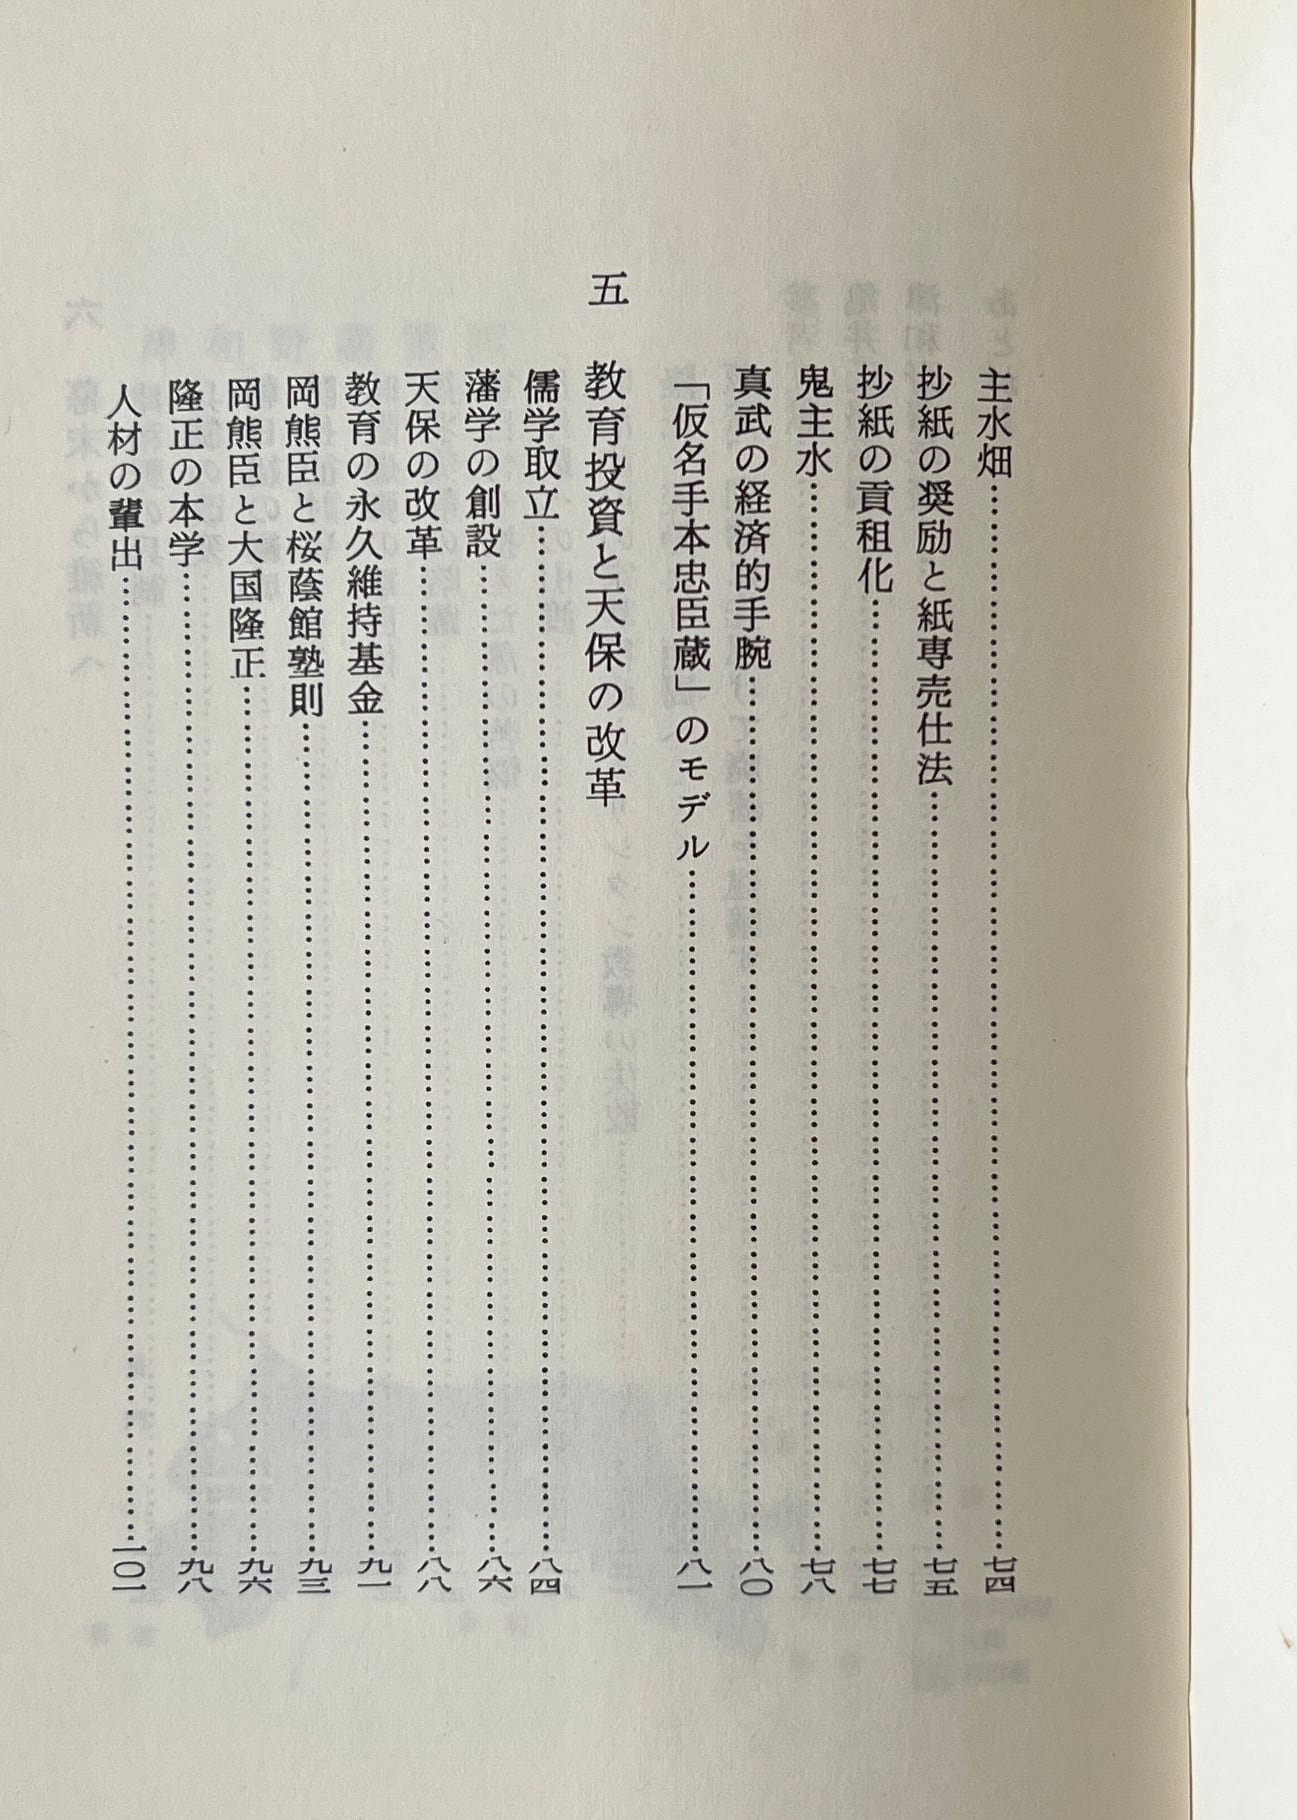 主水畑……………………七四
抄紙の奨励と紙専売仕法……………………七五
抄紙の貢租化……………………七七
鬼主水……………………七八
真武の経済的手腕……………………八〇
「仮名手本忠臣蔵」のモデル……………………八一
五　教育投資と天保の改革
儒学取立……………………八四
藩学の創設……………………八六
天保の改革……………………八八
教育の永久維持基金……………………九一
岡熊臣と桜蔭館塾則……………………九三
岡熊臣と大国隆正……………………九六
隆正の本学……………………九八
人材の輩出……………………一〇一